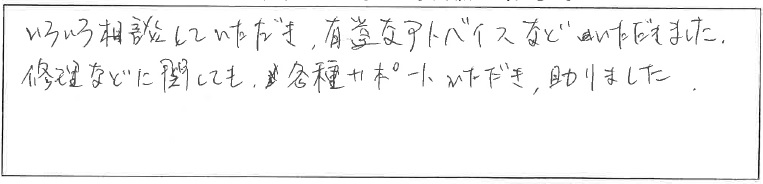 いろいろ相談していただき、有益なアドバイスなどいただきました。
修理などに関しても、各種サポートいただき、助かりました。